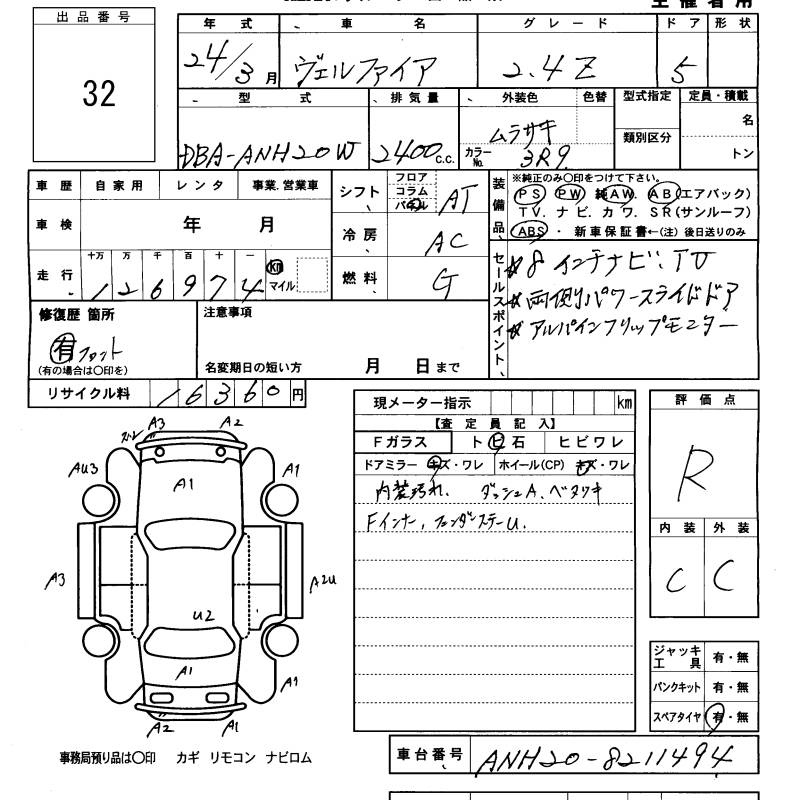 出品番号
32
年式 車名 グレード ドア 形状
24/3月 ヴェルファイア 2.4Z 5
型式 排気量 外装色 色替 型式指定 定員・積載
DBA-ANH20W 2400c.c. ムラサキ 類別区分 名
カラーNo. 3R9 トン
車歴 自家用 レンタ 事業.営業車
車検 年 月
走行 十万 万 千 百 十 一 km マイル
126974
シフト フロア コラム パネル AT
冷房 AC
燃料 G
装備品
※純正のみ〇印をつけて下さい。
PS PW 純AW. AB(エアバック)
TV. ナビ. カワ. SR(サンルーフ)
ABS・新車保証書←(注)後日送りのみ
セールスポイント
☆8インチナビ.TV
☆両側パワースライドドア
☆アルパインフリップモニター
修復歴 箇所
有 フロント
(有の場合は〇印を)
注意事項
名変期日の短い方 月 日まで
リサイクル料 16360円
現メーター指示 km
【査定員記入】
Fガラス ト ヒ 石 ヒビワレ
ドアミラー キズ・ワレ ホイール(CP) キズ・ワレ
内装汚れ、ダッシュA、ベタツキ
Fインナー,フェンダーステーU.
評価点
R
内装 外装
C C
ジャッキ工具 有・無
パンクキット 有・無
スペアタイヤ 有・無
A3 A2
AU3 A1 A1
A3 A2U
U2
A1 A1
A2 A1
事務局預り品は〇印 カギ リモコン ナビロム
車台番号 ANH20-8211494